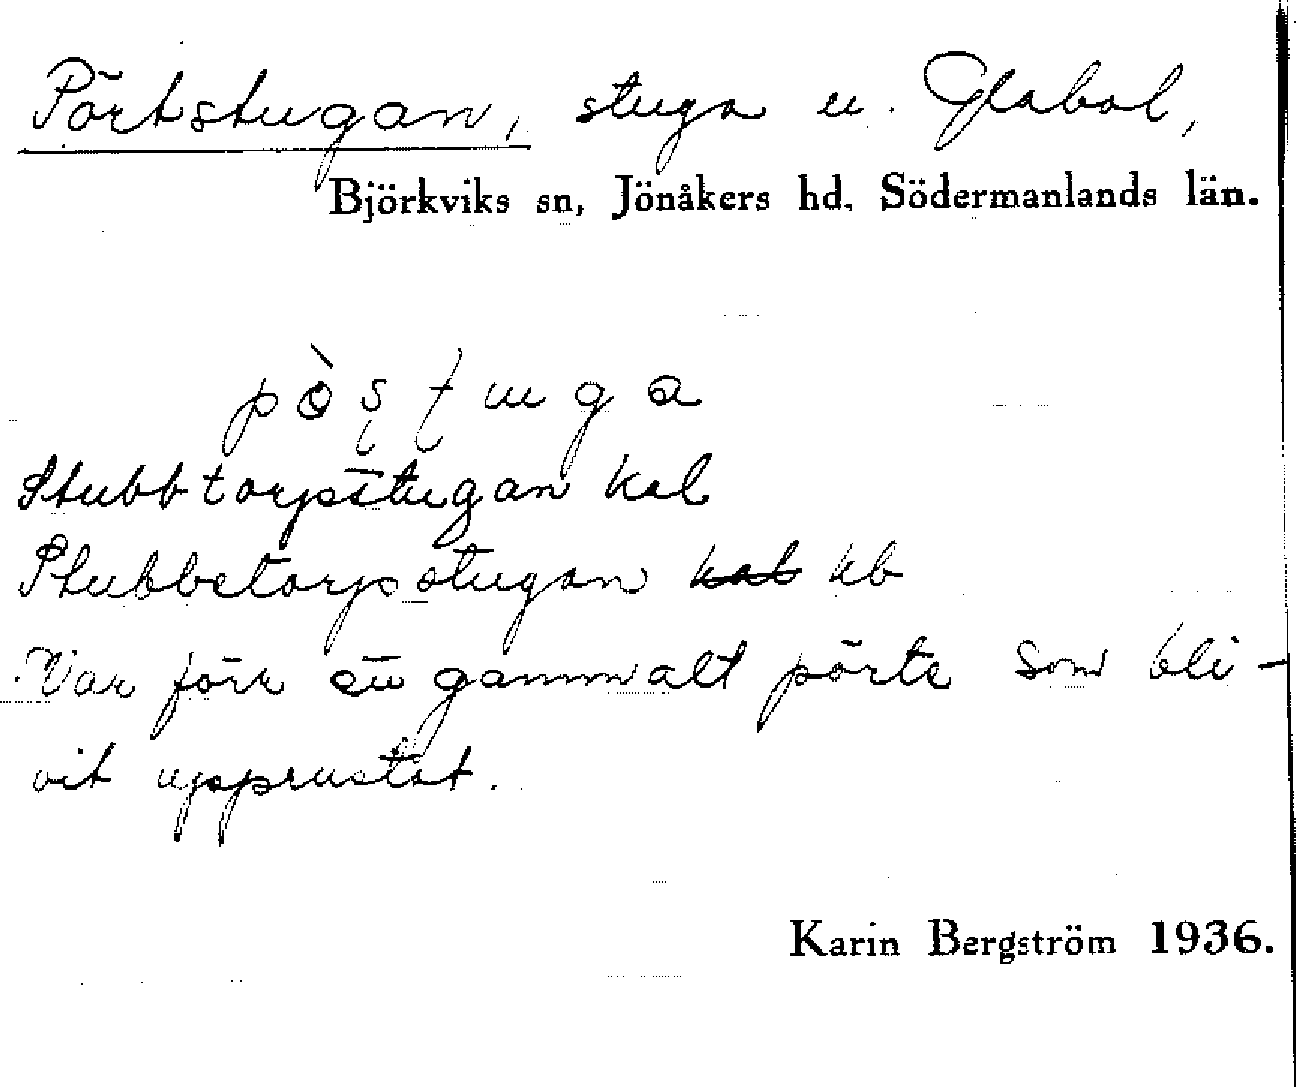 Pörtstugan, stuga u. Glabol,
Björkviks sn, Jönåkers hd, Södermanlands län.
pòʂʈuga
Stubbtorpsstugan kal
Stubbetorpsstugan kal kb
Var förr ett gammalt pörte som bli-
vit upprustat.
Karin Bergström 1936.